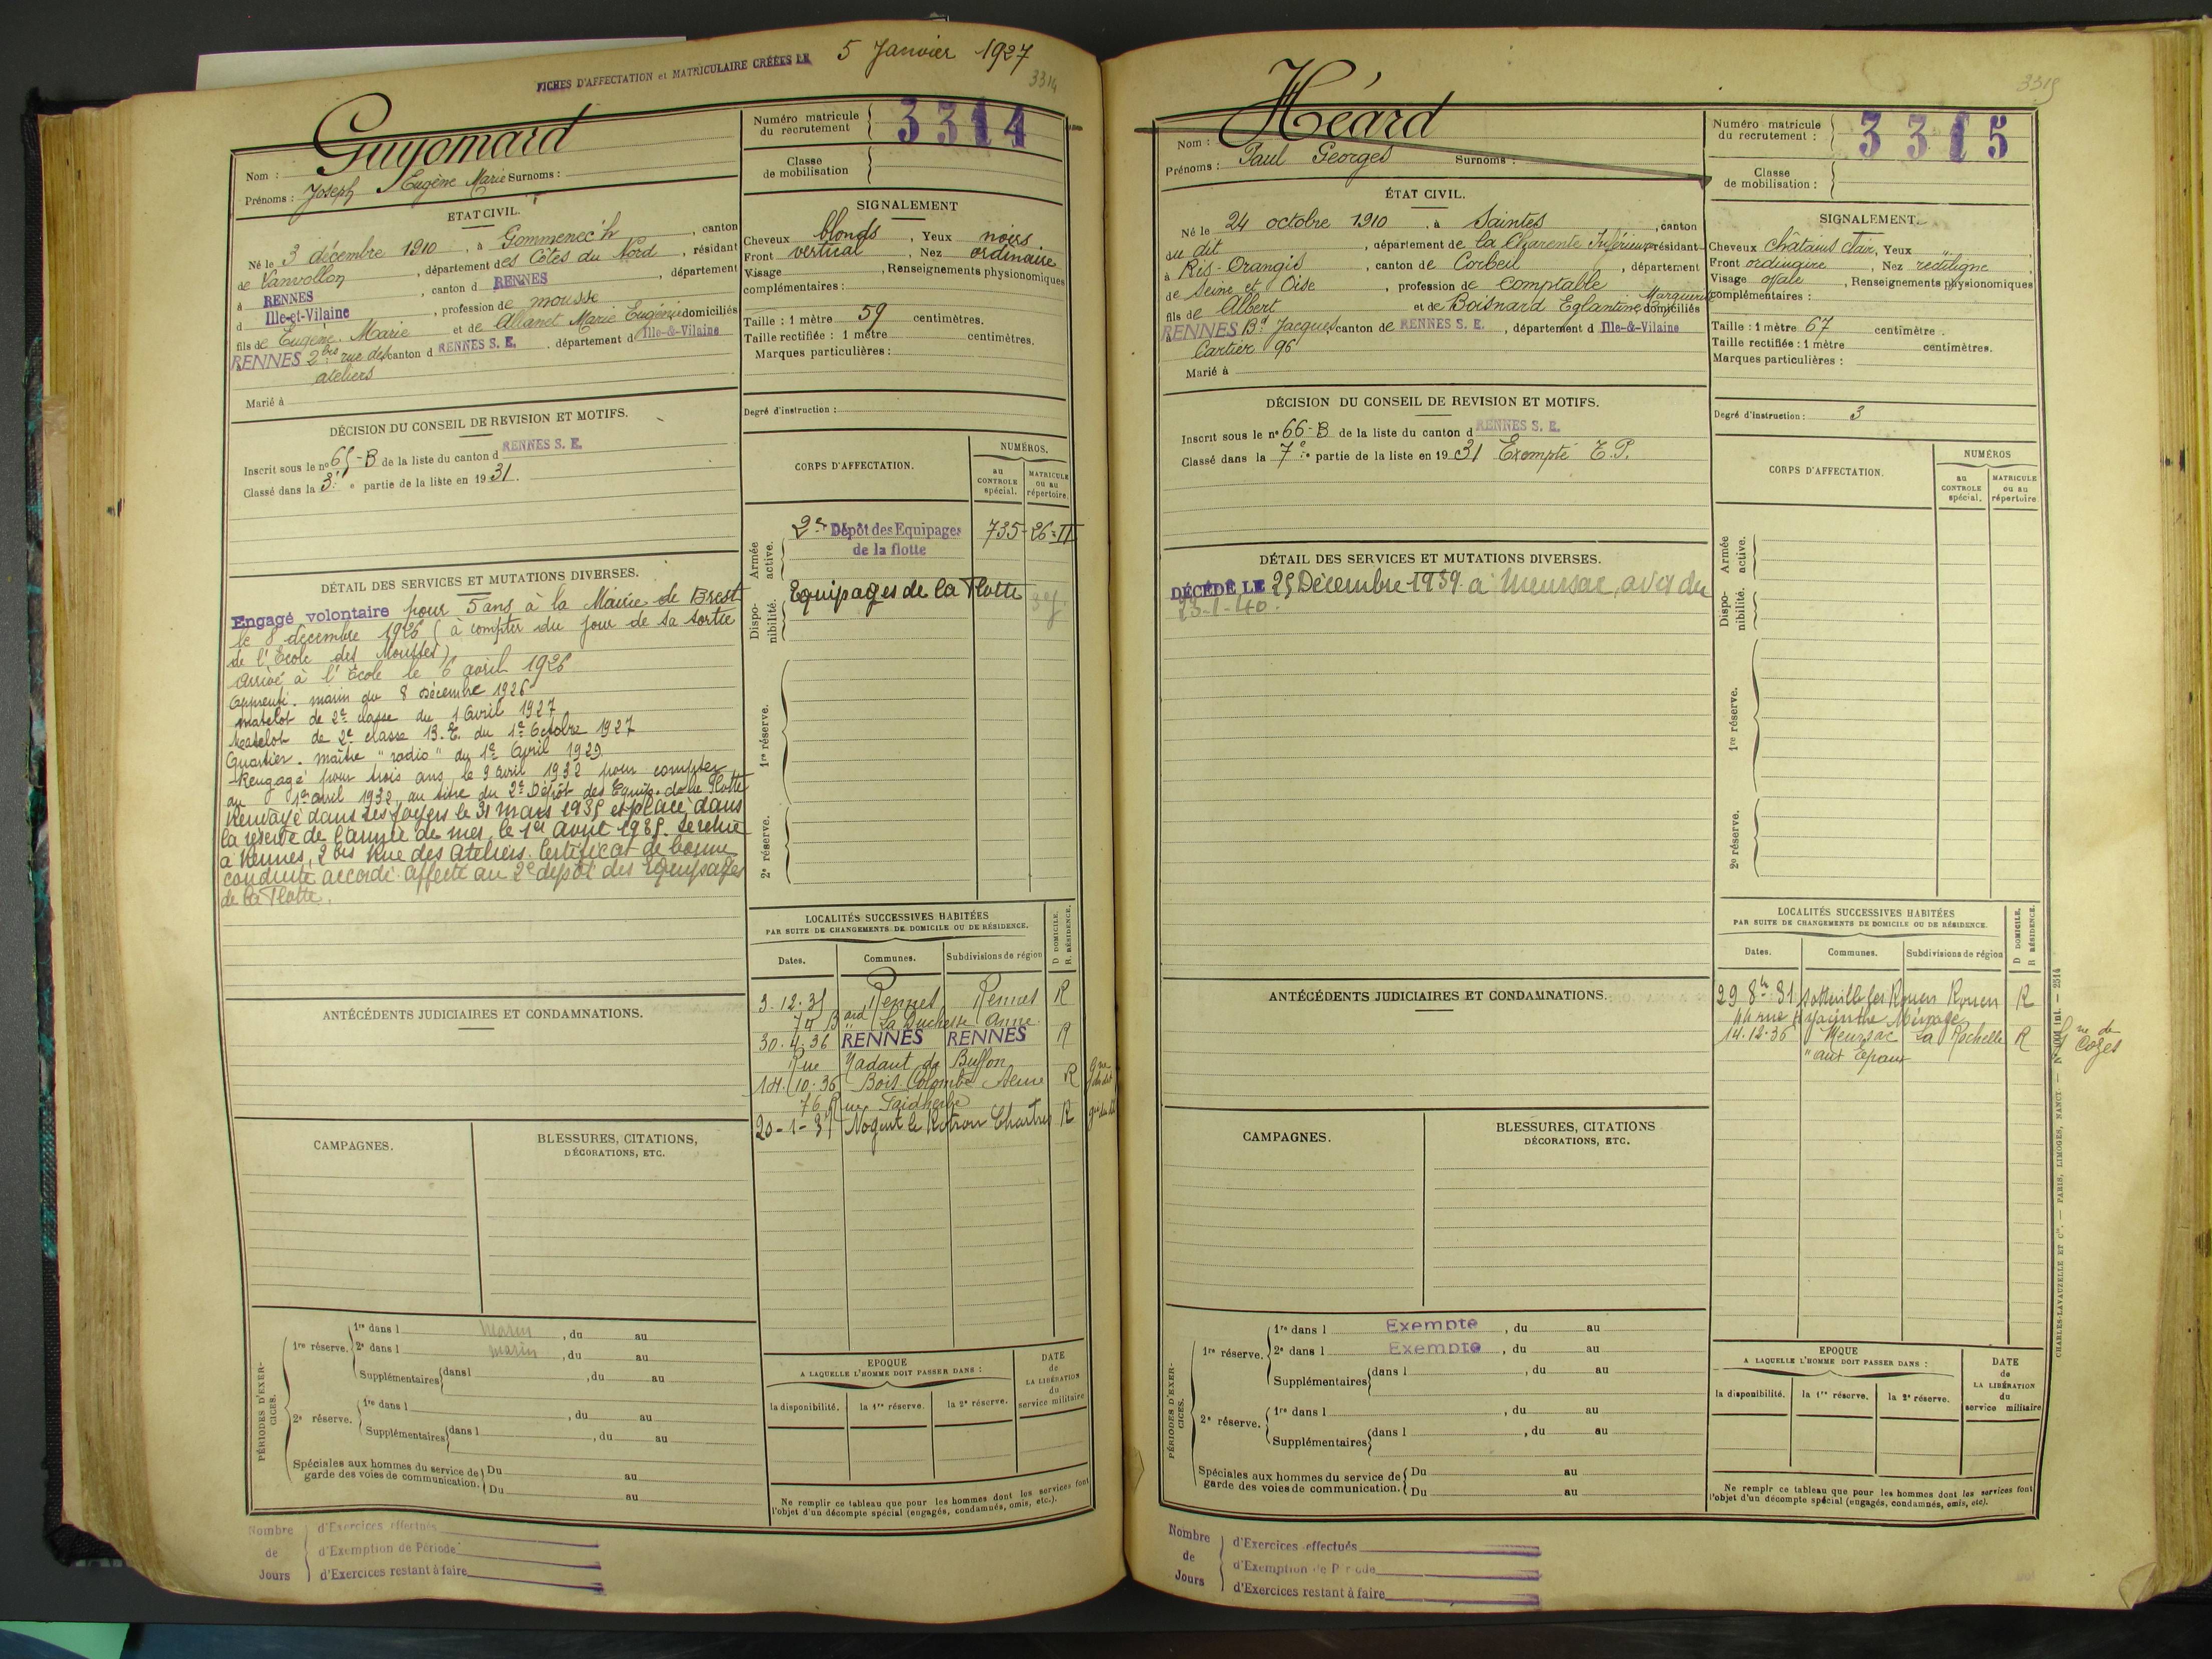 FICHES D'AFFECTATION et MATRICULAIRE CRÉÉES LE 5 Janvier 1927
3314
Guyomard
Nom :
Prénoms : Joseph Eugène Marie Surnoms :
Numéro matricule du recrutement 3314
Classe de mobilisation
ETAT CIVIL.
Né le 3 décembre 1910, à Gommenec'h, canton
de Lanvollon, département des Côtes du Nord, résidant
à RENNES, canton d RENNES, département
d Ille-et-Vilaine, profession de mousse
fils de Eugène Marie et de Allanet Marie Eugénie domiciliés
RENNES 2 bis rue des canton d RENNES S. E. département d Ille-&-Vilaine
ateliers
Marié à
SIGNALEMENT
Cheveux blonds, Yeux noirs.
Front vertical, Nez ordinaire
Visage, Renseignements physionomiques
complémentaires :
Taille : 1 mètre 59 centimètres.
Taille rectifiée : 1 mètre centimètres.
Marques particulières :
Degré d'instruction :
DÉCISION DU CONSEIL DE REVISION ET MOTIFS.
Inscrit sous le nº 65-B de la liste du canton d RENNES S. E.
Classé dans la 3e partie de la liste en 1931.
CORPS D'AFFECTATION.
NUMÉROS.
au CONTROLE spécial.
MATRICULE ou au répertoire.
Armée active.
2e Dépôt des Equipages de la flotte 735-26-II
Disponibilité.
Equipages de la Flotte
1re réserve.
2e réserve.
DÉTAIL DES SERVICES ET MUTATIONS DIVERSES.
Engagé volontaire pour 5 ans à la Mairie de Brest
le 8 décembre 1926 (à compter du jour de sa sortie
de l'Ecole des Mousses)
Arrivé à l'Ecole le 6 avril 1926
Apprenti. marin du 8 Décembre 1926
Matelot de 2e classe du 1 Avril 1927
Matelot de 2e classe B.E. du 1e Octobre 1927
Quartier. maître "radio" du 1e Avril 1929
Rengagé pour trois ans le 9 avril 1932 pour compter
du 1e avril 1932 au titre du 2e Dépôt des Equip. de la Flotte
Renvoyé dans ses foyers le 31 mars 1935 et placé dans
la réserve de l'armée de mer le 1er avril 1935. Se retire
à Rennes, 2 bis Rue des Ateliers. Certificat de bonne
conduite accordé. Affecté au 2e dépôt des Equipages
de la Flotte.
ANTÉCÉDENTS JUDICIAIRES ET CONDAMNATIONS.
CAMPAGNES.
BLESSURES, CITATIONS, DÉCORATIONS, ETC.
LOCALITÉS SUCCESSIVES HABITÉES
PAR SUITE DE CHANGEMENTS DE DOMICILE OU DE RÉSIDENCE.
D DOMICILE. R. RÉSIDENCE.
Dates. Communes. Subdivisions de région
3.12.35 Rennes Rennes R
74 Bard La Duchesse Anne
30.4.36 RENNES RENNES R
Rue Nadaut de Buffon
14.10.36 Bois Colombe Seine R
76 Rue Faidherbe
20-1-37 Nogent le Rotrou Chartres R
PÉRIODES D'EXERCICES.
1re réserve.
1re dans l marin, du au
2e dans l marin, du au
Supplémentaires dans l, du au
2e réserve.
1re dans l, du au
Supplémentaires dans l, du au
Spéciales aux hommes du service de garde des voies de communication.
Du au
Du au
EPOQUE
A LAQUELLE L'HOMME DOIT PASSER DANS :
la disponibilité. la 1re réserve. la 2e réserve.
DATE de LA LIBÉRATION du service militaire
Ne remplir ce tableau que pour les hommes dont les services font
l'objet d'un décompte spécial (engagés, condamnés, omis, etc.).
Nombre de Jours
d'Exercices effectués
d'Exemption de Période
d'Exercices restant à faire
3315
Héard
Nom :
Prénoms : Paul Georges Surnoms :
Numéro matricule du recrutement : 3315
Classe de mobilisation :
ÉTAT CIVIL.
Né le 24 octobre 1910, à Saintes, canton
du dit, département de la Charente Inférieure, résidant
à Ris-Orangis, canton de Corbeil, département
de Seine et Oise, profession de comptable
fils de Albert et de Boisnard Eglantine Marguerite domiciliés
à RENNES Bd Jacques canton de RENNES S. E., département d Ille-&-Vilaine
Cartier 96
Marié à
SIGNALEMENT.
Cheveux châtains clair, Yeux "
Front ordinaire, Nez rectiligne
Visage ovale, Renseignements physionomiques
complémentaires :
Taille : 1 mètre 67 centimètre.
Taille rectifiée : 1 mètre centimètres.
Marques particulières :
Degré d'instruction : 3
DÉCISION DU CONSEIL DE REVISION ET MOTIFS.
Inscrit sous le nº 66-B de la liste du canton d RENNES S. E.
Classé dans la 7e partie de la liste en 1931 Exempté E.P.
CORPS D'AFFECTATION.
NUMÉROS
au CONTROLE spécial.
MATRICULE ou au répertoire.
Armée active.
Disponibilité.
1re réserve.
2e réserve.
DÉTAIL DES SERVICES ET MUTATIONS DIVERSES.
DÉCÉDÉ LE 25 Décembre 1939 à Meursac, avis du
23-1-40.
ANTÉCÉDENTS JUDICIAIRES ET CONDAMNATIONS.
CAMPAGNES.
BLESSURES, CITATIONS DÉCORATIONS, ETC.
LOCALITÉS SUCCESSIVES HABITÉES
PAR SUITE DE CHANGEMENTS DE DOMICILE OU DE RÉSIDENCE.
D DOMICILE. R RÉSIDENCE.
Dates. Communes. Subdivisions de région
29 8bre 31 Sotteville les Rouen Rouen R
44 rue Hyacinthe Ménage
14.12.36 Meursac La Rochelle R Gne de Cozes
"aux Epaux
PÉRIODES D'EXERCICES.
1re réserve.
1re dans l Exempte, du au
2e dans l Exempte, du au
Supplémentaires dans l, du au
2e réserve.
1re dans l, du au
Supplémentaires dans l, du au
Spéciales aux hommes du service de garde des voies de communication.
Du au
Du au
EPOQUE
A LAQUELLE L'HOMME DOIT PASSER DANS :
la disponibilité. la 1re réserve. la 2e réserve.
DATE de LA LIBÉRATION du service militaire
Ne remplir ce tableau que pour les hommes dont les services font
l'objet d'un décompte spécial (engagés, condamnés, omis, etc).
CHARLES-LAVAUZELLE ET Cie. — PARIS, LIMOGES, NANCY — 2514
Nombre de Jours
d'Exercices effectués
d'Exemption de Période
d'Exercices restant à faire